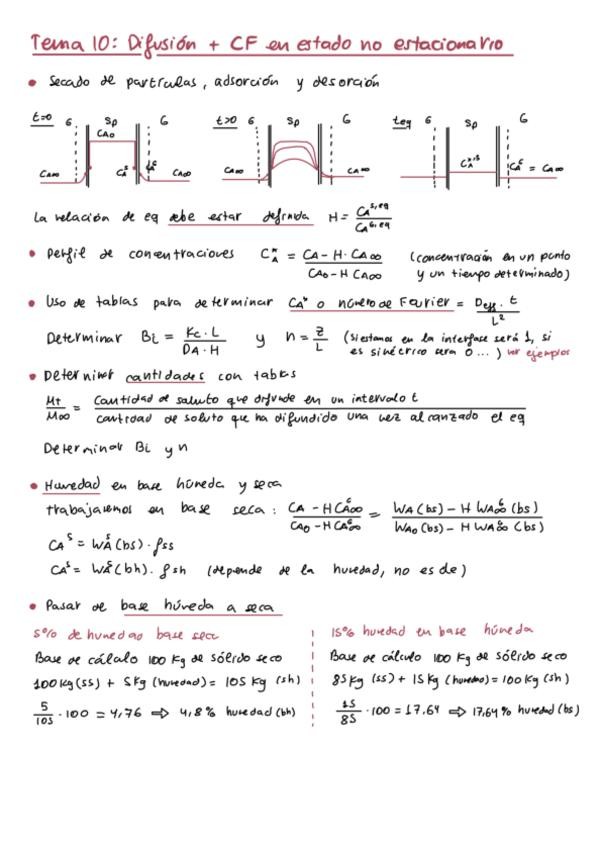 Tema 10: Difusión + CF en estado no estacionario
• Secado de partículas, adsorción y desorción
t=0 G Sp G t>0 G Sp G teq G Sp G
CAo
CA∞ CAˢ CAᴳ CA∞ CA∞ CA∞ CA∞ CAᴳ = CA∞
La relación de eq debe estar definida H = CA^s,eq / CA^G,eq
• Perfil de concentraciones C*A = CA - H · CA∞ / CAo - H CA∞ (concentración en un punto
y un tiempo determinado)
• Uso de tablas para determinar CA* o número de Fourier = Deff · t / L²
Determinar Bi = Kc · L / DA · H y n = z / L (si estamos en la interfase será 1, si
es simétrico sera 0 ...) ver ejemplos
• Determinar cantidades con tablas
Mt / M∞ = Cantidad de soluto que difunde en un intervalo t / cantidad de soluto que ha difundido una vez alcanzado el eq
Determinar Bi y n
• Humedad en base húmeda y seca
trabajaremos en base seca: CA - H CAᴳ∞ / CAo - H CAᴳ∞ = WA (bs) - H WAᴳ∞ (bs) / WAo (bs) - H WAᴳ∞ (bs)
CAˢ = WAˢ (bs) · ρss
CAˢ = WAˢ (bh) · ρsh (depende de la humedad, no es de)
• Pasar de base húmeda a seca
5% de humedad base seca
Base de cálculo 100 Kg de sólido seco
100 Kg (ss) + 5 Kg (humedad) = 105 Kg (sh)
5 / 105 · 100 = 4,76 ⇒ 4,8% humedad (bh)
15% humedad en base húmeda
Base de cálculo 100 Kg de sólido seco
85 Kg (ss) + 15 Kg (humedad) = 100 Kg (sh)
15 / 85 · 100 = 17,64 ⇒ 17,64% humedad (bs)